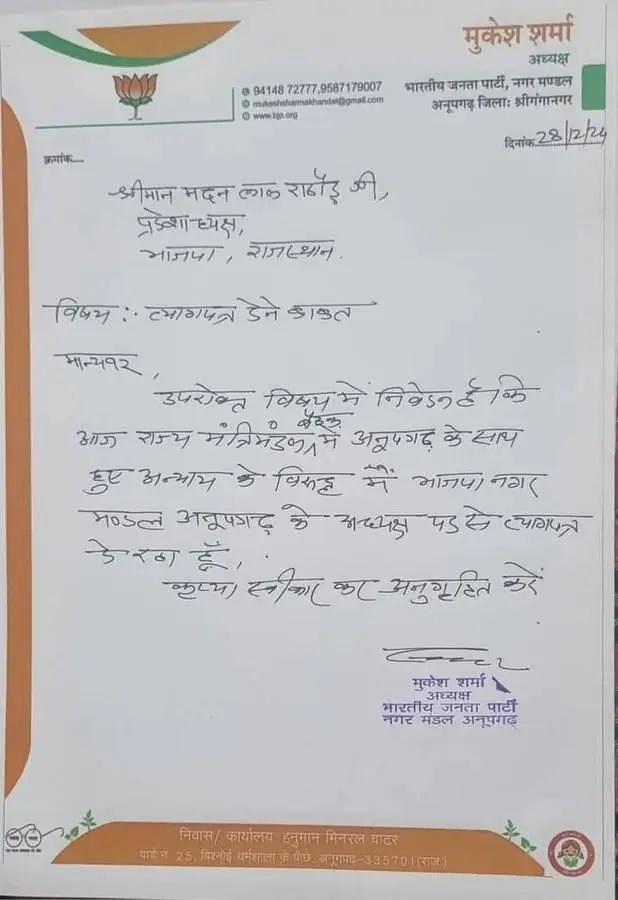 मुकेश शर्मा
अध्यक्ष
भारतीय जनता पार्टी, नगर मण्डल
अनूपगढ़ जिला: श्रीगंगानगर
94148 72777,9587179007
mukeshsharmakhandal@gmail.com
www.bjp.org
दिनांक 28/12/24
क्रमांक....
श्रीमान मदन लाल राठौड़ जी,
प्रदेशाध्यक्ष,
भाजपा, राजस्थान.
विषय:- त्यागपत्र देने बाबत
मान्यवर,
उपरोक्त विषय में निवेदन है कि
आज राज्य मंत्रिमंडल बैठक में अनूपगढ़ के साथ
हुए अन्याय के विरुद्ध मैं भाजपा नगर
मण्डल अनूपगढ़ के अध्यक्ष पद से त्यागपत्र
दे रहा हूँ,
कृप्या स्वीकार कर अनुगृहित करें
मुकेश शर्मा
अध्यक्ष
भारतीय जनता पार्टी
नगर मंडल अनूपगढ़
निवास/ कार्यालय हनुमान मिनरल वाटर
वार्ड न. 25, बिश्नोई धर्मशाला के पीछे, अनूपगढ-335701(राज.)